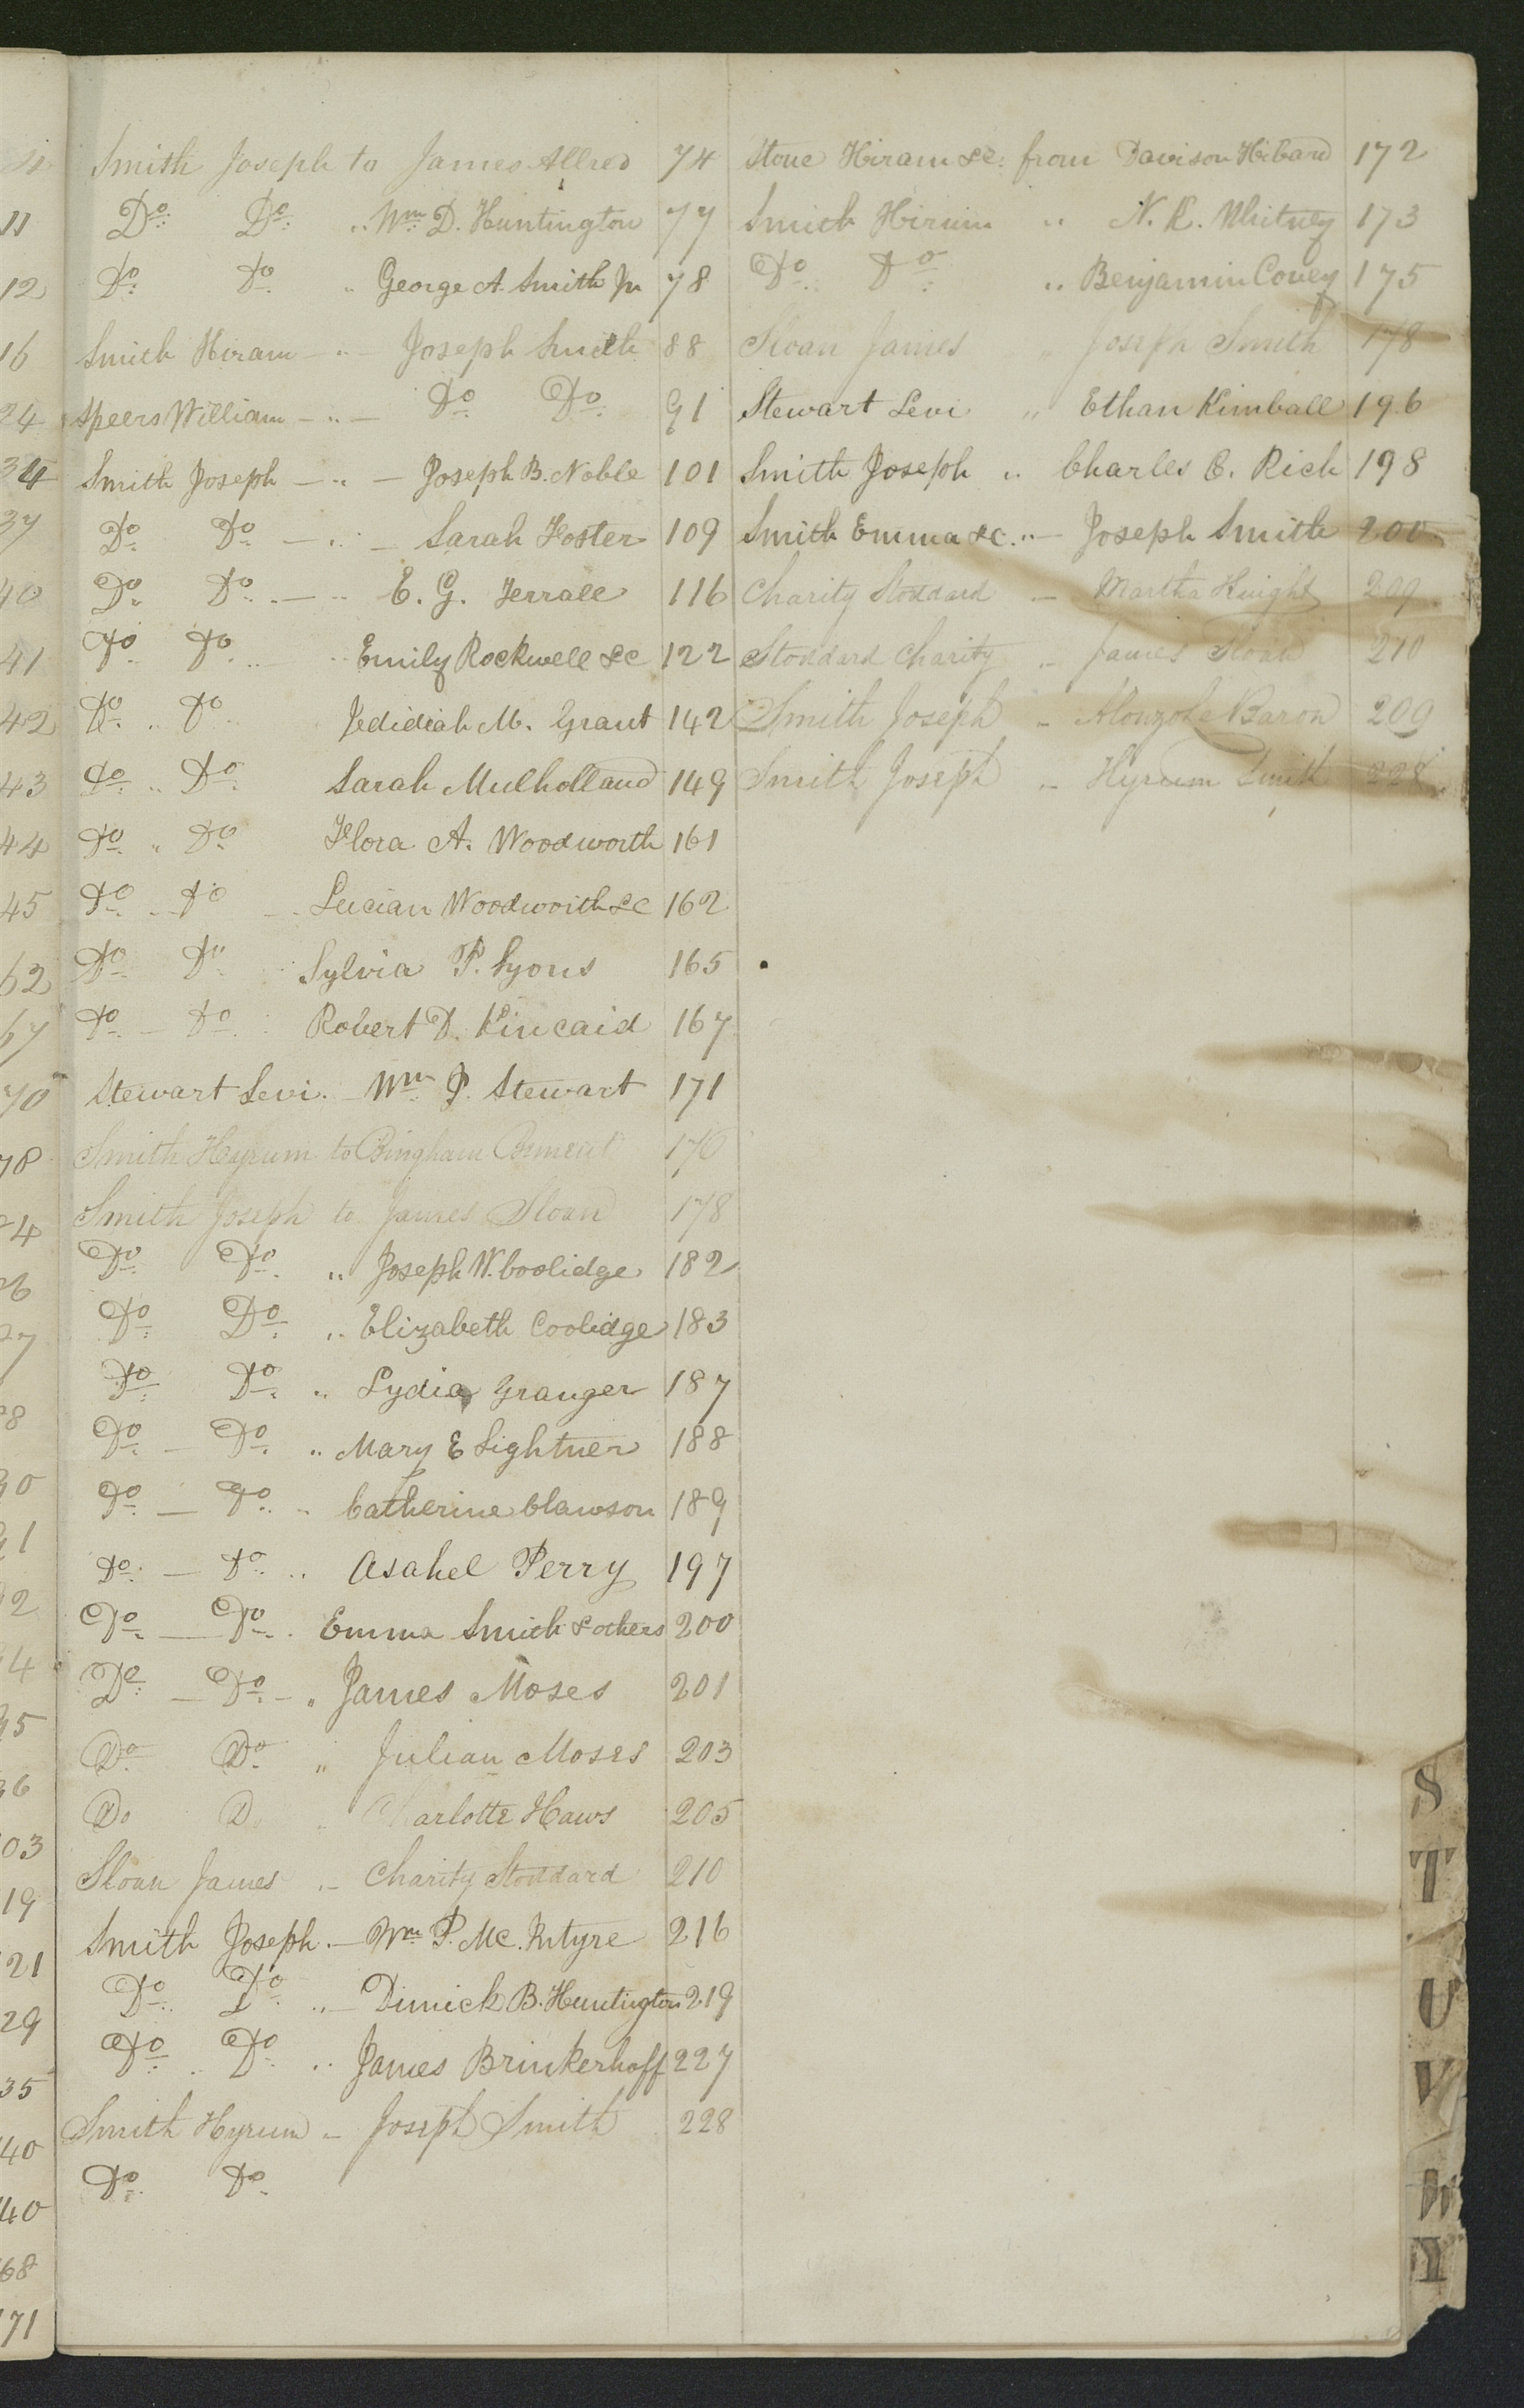 Smith Joseph to James Allred 74
Do Do " Wm D. Huntington 77
Do Do " George A. Smith Jr 78
Smith Hiram — " — Joseph Smith 88
Speers William — " — Do Do 91
Smith Joseph — " — Joseph B. Noble 101
Do Do — " — Sarah Foster 109
Do Do — " E. G. Terrall 116
Do Do " Emily Rockwell &c 122
Do " Do Jedidiah M. Grant 142
Do " Do Sarah Mulholland 149
Do " Do Flora A. Woodworth 161
Do Do Lucian Woodworth &c 162
Do Do Sylvia P. Lyons 165
Do Do Robert D. Kincaid 167
Stewart Levi. Wm J. Stewart 171
Smith Hyrum to Bingham Bement 176
Smith Joseph to James Sloan 178
Do Do " Joseph W. Coolidge 182
Do Do " Elizabeth Coolidge 183
Do Do " Lydia Granger 187
Do — Do " Mary E Lightner 188
Do — Do " Catherine Clawson 189
Do — Do " Asahel Perry 197
Do — Do Emma Smith & others 200
Do — Do — " James Moses 201
Do Do " Julian Moses 203
Do Do " Charlotte Haws 205
Sloan James " Charity Stoddard 210
Smith Joseph — Wm P. Mc. Intyre 216
Do Do " — Dimick B. Huntington 219
Do Do " James Brinkerhoff 227
Smith Hyrum " Joseph Smith 228
Do Do
Stone Hiram &c. from Davison Hibard 172
Smith Hirum " N. K. Whitney 173
Do Do " Benjamin Covey 175
Sloan James " Joseph Smith 178
Stewart Levi " Ethan Kimball 196
Smith Joseph " Charles C. Rich 198
Smith Emma &c. " — Joseph Smith 200
Charity Stoddard — Martha Knight 209
Stoddard Charity " James Sloan 210
Smith Joseph " Alonzo LeBaron 209
Smith Joseph " Hyrum Smith 228
11
12
16
24
34
37
40
41
42
43
44
45
62
67
70
78
03
19
21
29
35
40
40
68
71
S
T
U
V
W
Y